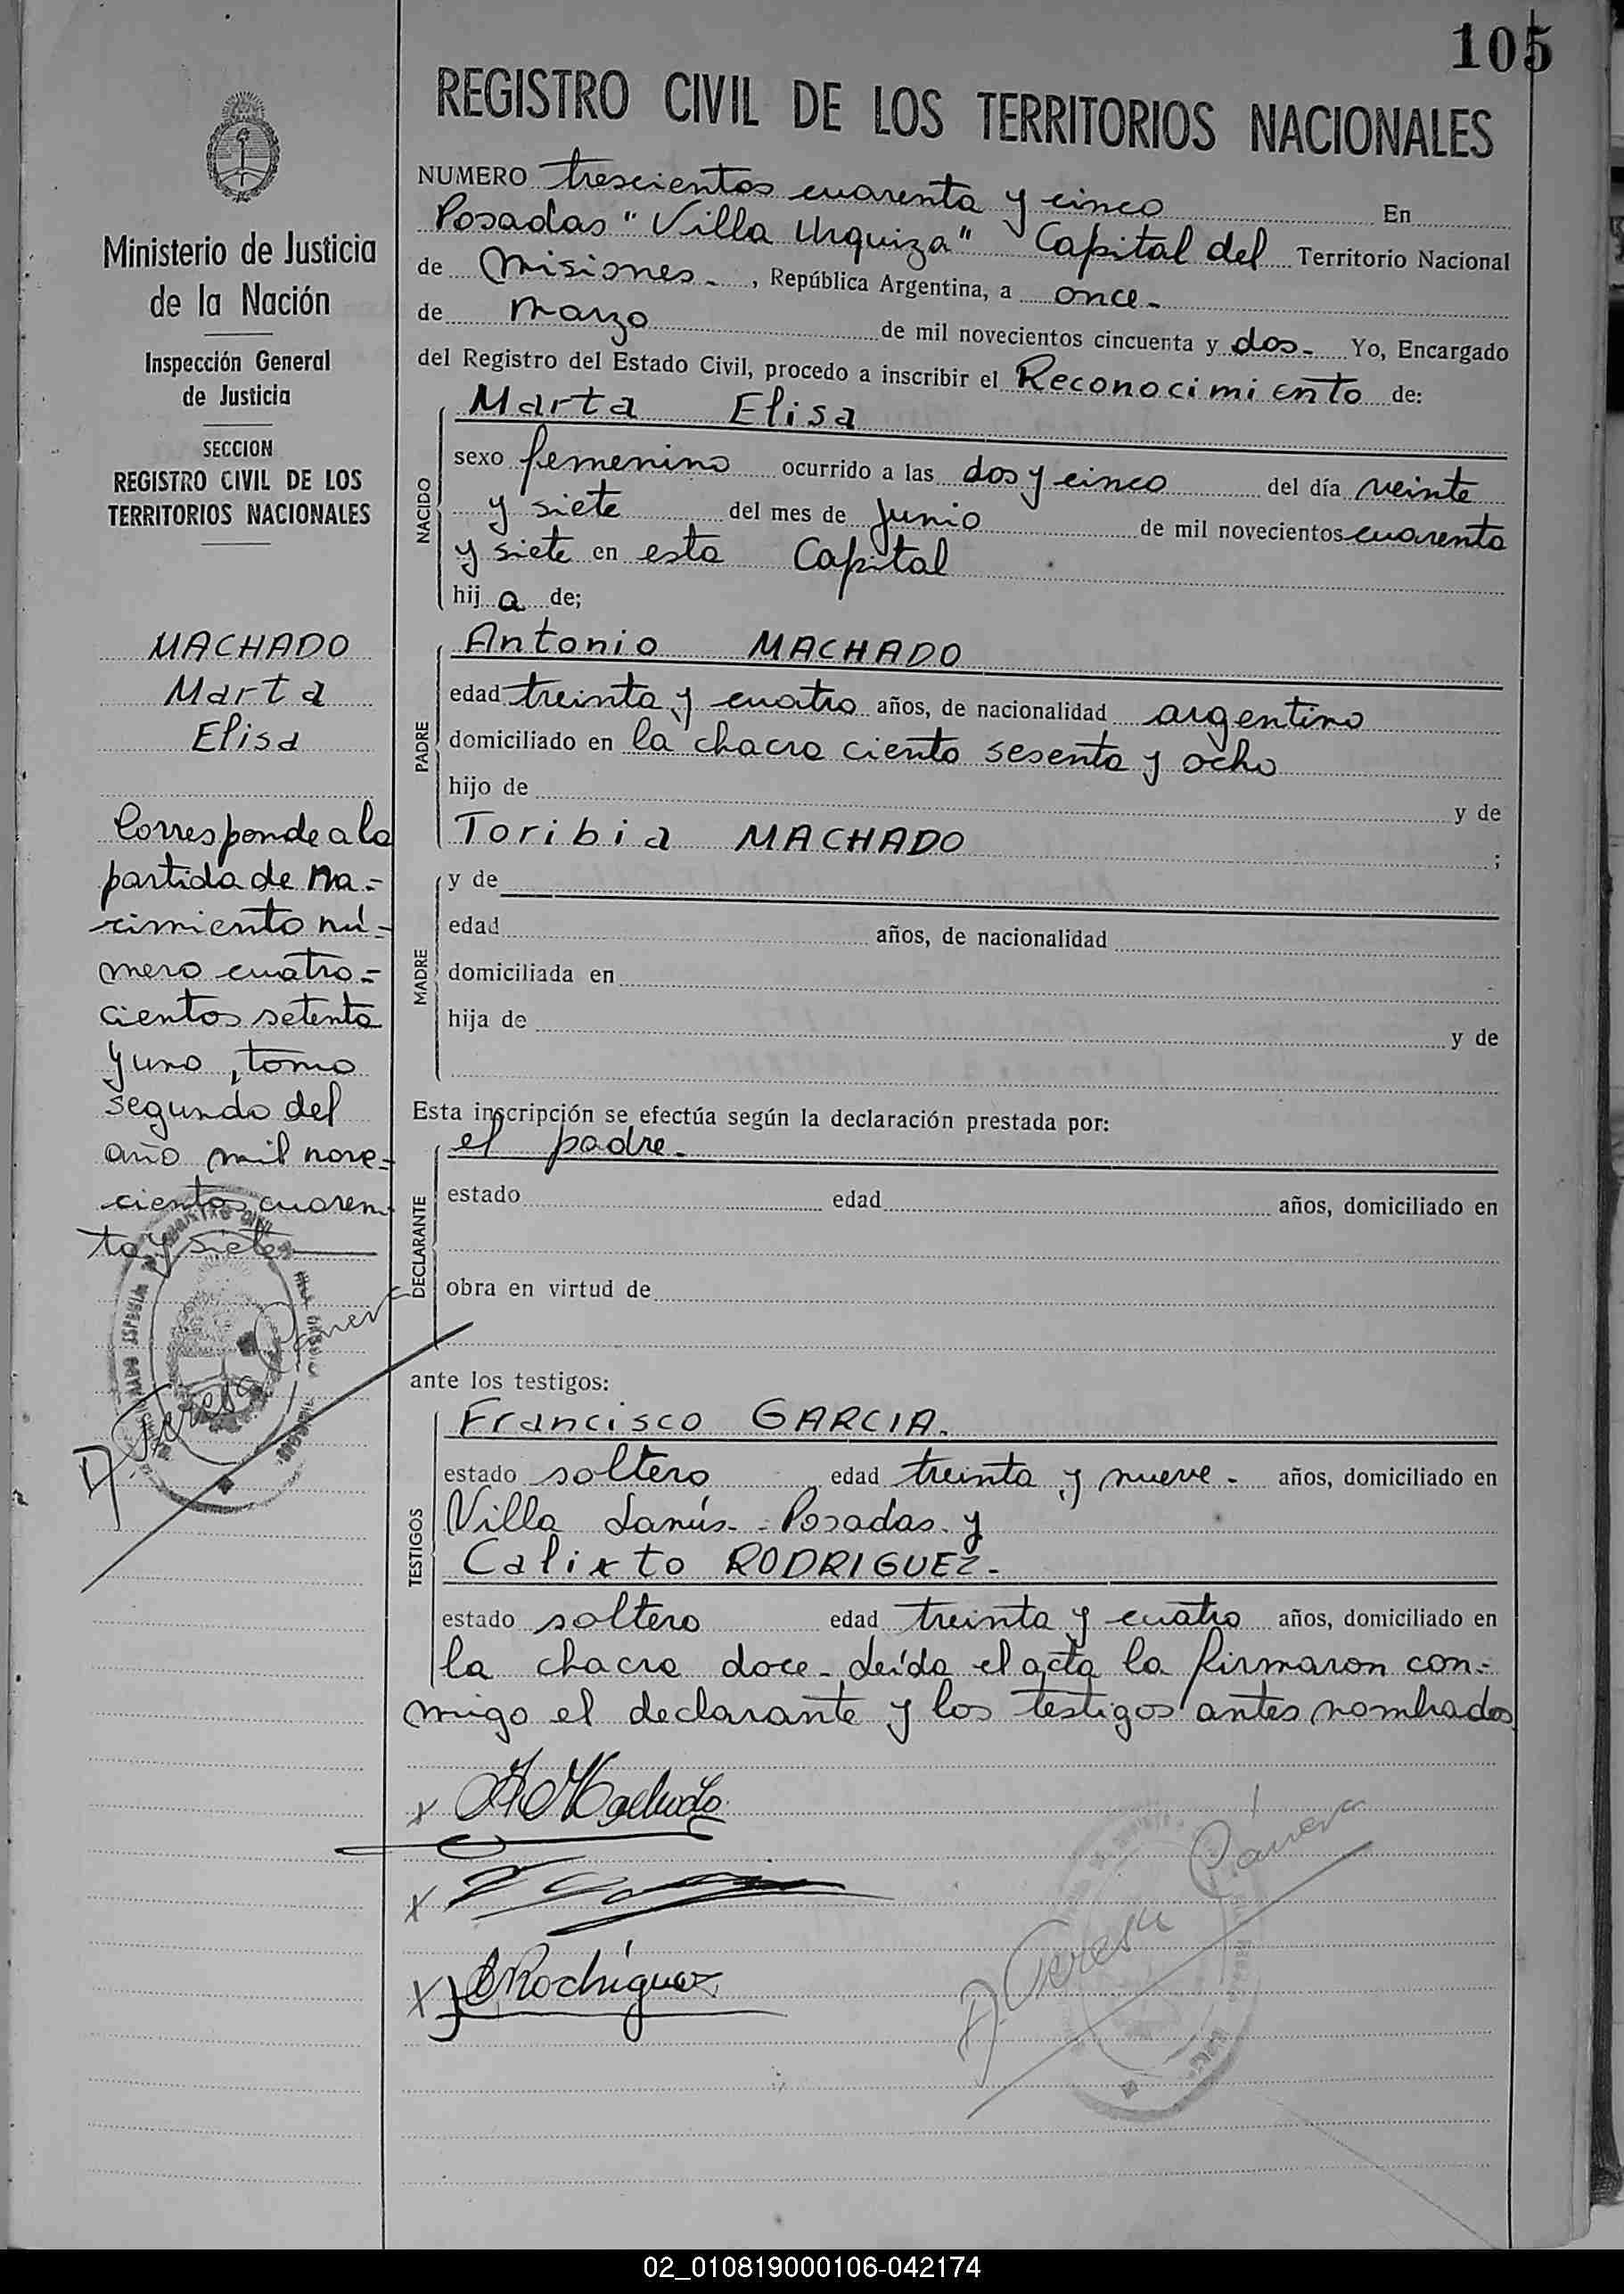 105
REGISTRO CIVIL DE LOS TERRITORIOS NACIONALES
Ministerio de Justicia
de la Nación
Inspección General
de Justicia
SECCION
REGISTRO CIVIL DE LOS
TERRITORIOS NACIONALES
MACHADO
Marta
Elisa
Corresponde a la
partida de na=
cimiento nú=
mero cuatro=
cientos setenta
y uno, tomo
segundo del
año mil nove=
cientos cuaren
ta y siete
NUMERO trescientos cuarenta y cinco En
Posadas "Villa Urquiza" Capital del Territorio Nacional
de Misiones-, República Argentina, a once-
de marzo de mil novecientos cincuenta y dos- Yo, Encargado
del Registro del Estado Civil, procedo a inscribir el Reconocimiento de:
NACIDO
Marta Elisa
sexo femenino ocurrido a las dos y cinco del día veinte
y siete del mes de junio de mil novecientos cuarenta
y siete en esta Capital
hija de;
PADRE
Antonio MACHADO
edad treinta y cuatro años, de nacionalidad argentino
domiciliado en la chacra ciento sesenta y ocho
hijo de y de
Toribia MACHADO ;
MADRE
y de
edad años, de nacionalidad
domiciliada en
hija de y de
Esta inscripción se efectúa según la declaración prestada por:
DECLARANTE
el padre-
estado edad años, domiciliado en
obra en virtud de
ante los testigos:
TESTIGOS
Francisco GARCIA.
estado soltero edad treinta y nueve- años, domiciliado en
Villa Lanús- Posadas y
Calixto RODRIGUEZ-
estado soltero edad treinta y cuatro años, domiciliado en
la chacra doce- Leída el acta la firmaron con=
migo el declarante y los testigos antes nombrados
x A Machado
x
x Rodriguez
02_010819000106-042174